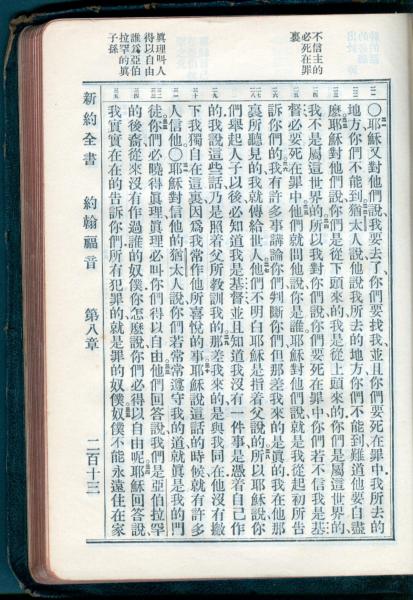 不信主的
必死在罪
裏
眞理叫人
得以自由
誰爲亞伯
拉罕的眞
子孫
〇耶穌又對他們說我要去了、你們要找我、並且你們要死在罪中我所去的
地方你們不能到猶太人說他說我所去的地方你們不能到難道他要自盡
麼耶穌對他們說你們是從下頭來的、我是從上頭來的、你們是屬這世界的、
我不是屬這世界的所以我對你們說你們要死在罪中你們若不信我是基
督必要死在罪中他們就問他說你是誰耶穌對他們說就是我從起初所告
訴你們的我有許多事講論你們判斷你們但那差我來的是眞的我在他那
裏所聽見的我就傳給世人他們不明白耶穌是指着父說的所以耶穌說你
們舉起人子以後必知道我是基督並且知道我沒有一件事是憑着自己作
的我說這些話乃是照着父所教訓我的那差我來的是與我同在他沒有撇
下我獨自在這裏因爲我常作他所喜悅的事耶穌說這話的時候就有許多
人信他〇耶穌對信他的猶太人說你們若常常遵守我的道就眞是我的門
徒你們必曉得眞理眞理必叫你們得以自由他們回答說我們是亞伯拉罕
的後裔從來沒有作過誰的奴僕你怎麼說你們必得以自由呢耶穌回答說
我實實在在的告訴你們所有犯罪的就是罪的奴僕奴僕不能永遠住在家
新約全書 約翰福音 第八章 二百十三